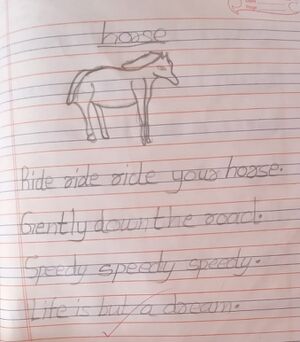 horse
Ride ride ride your horse.
Gently down the road.
Speedy speedy speedy.
Life is but a dream.